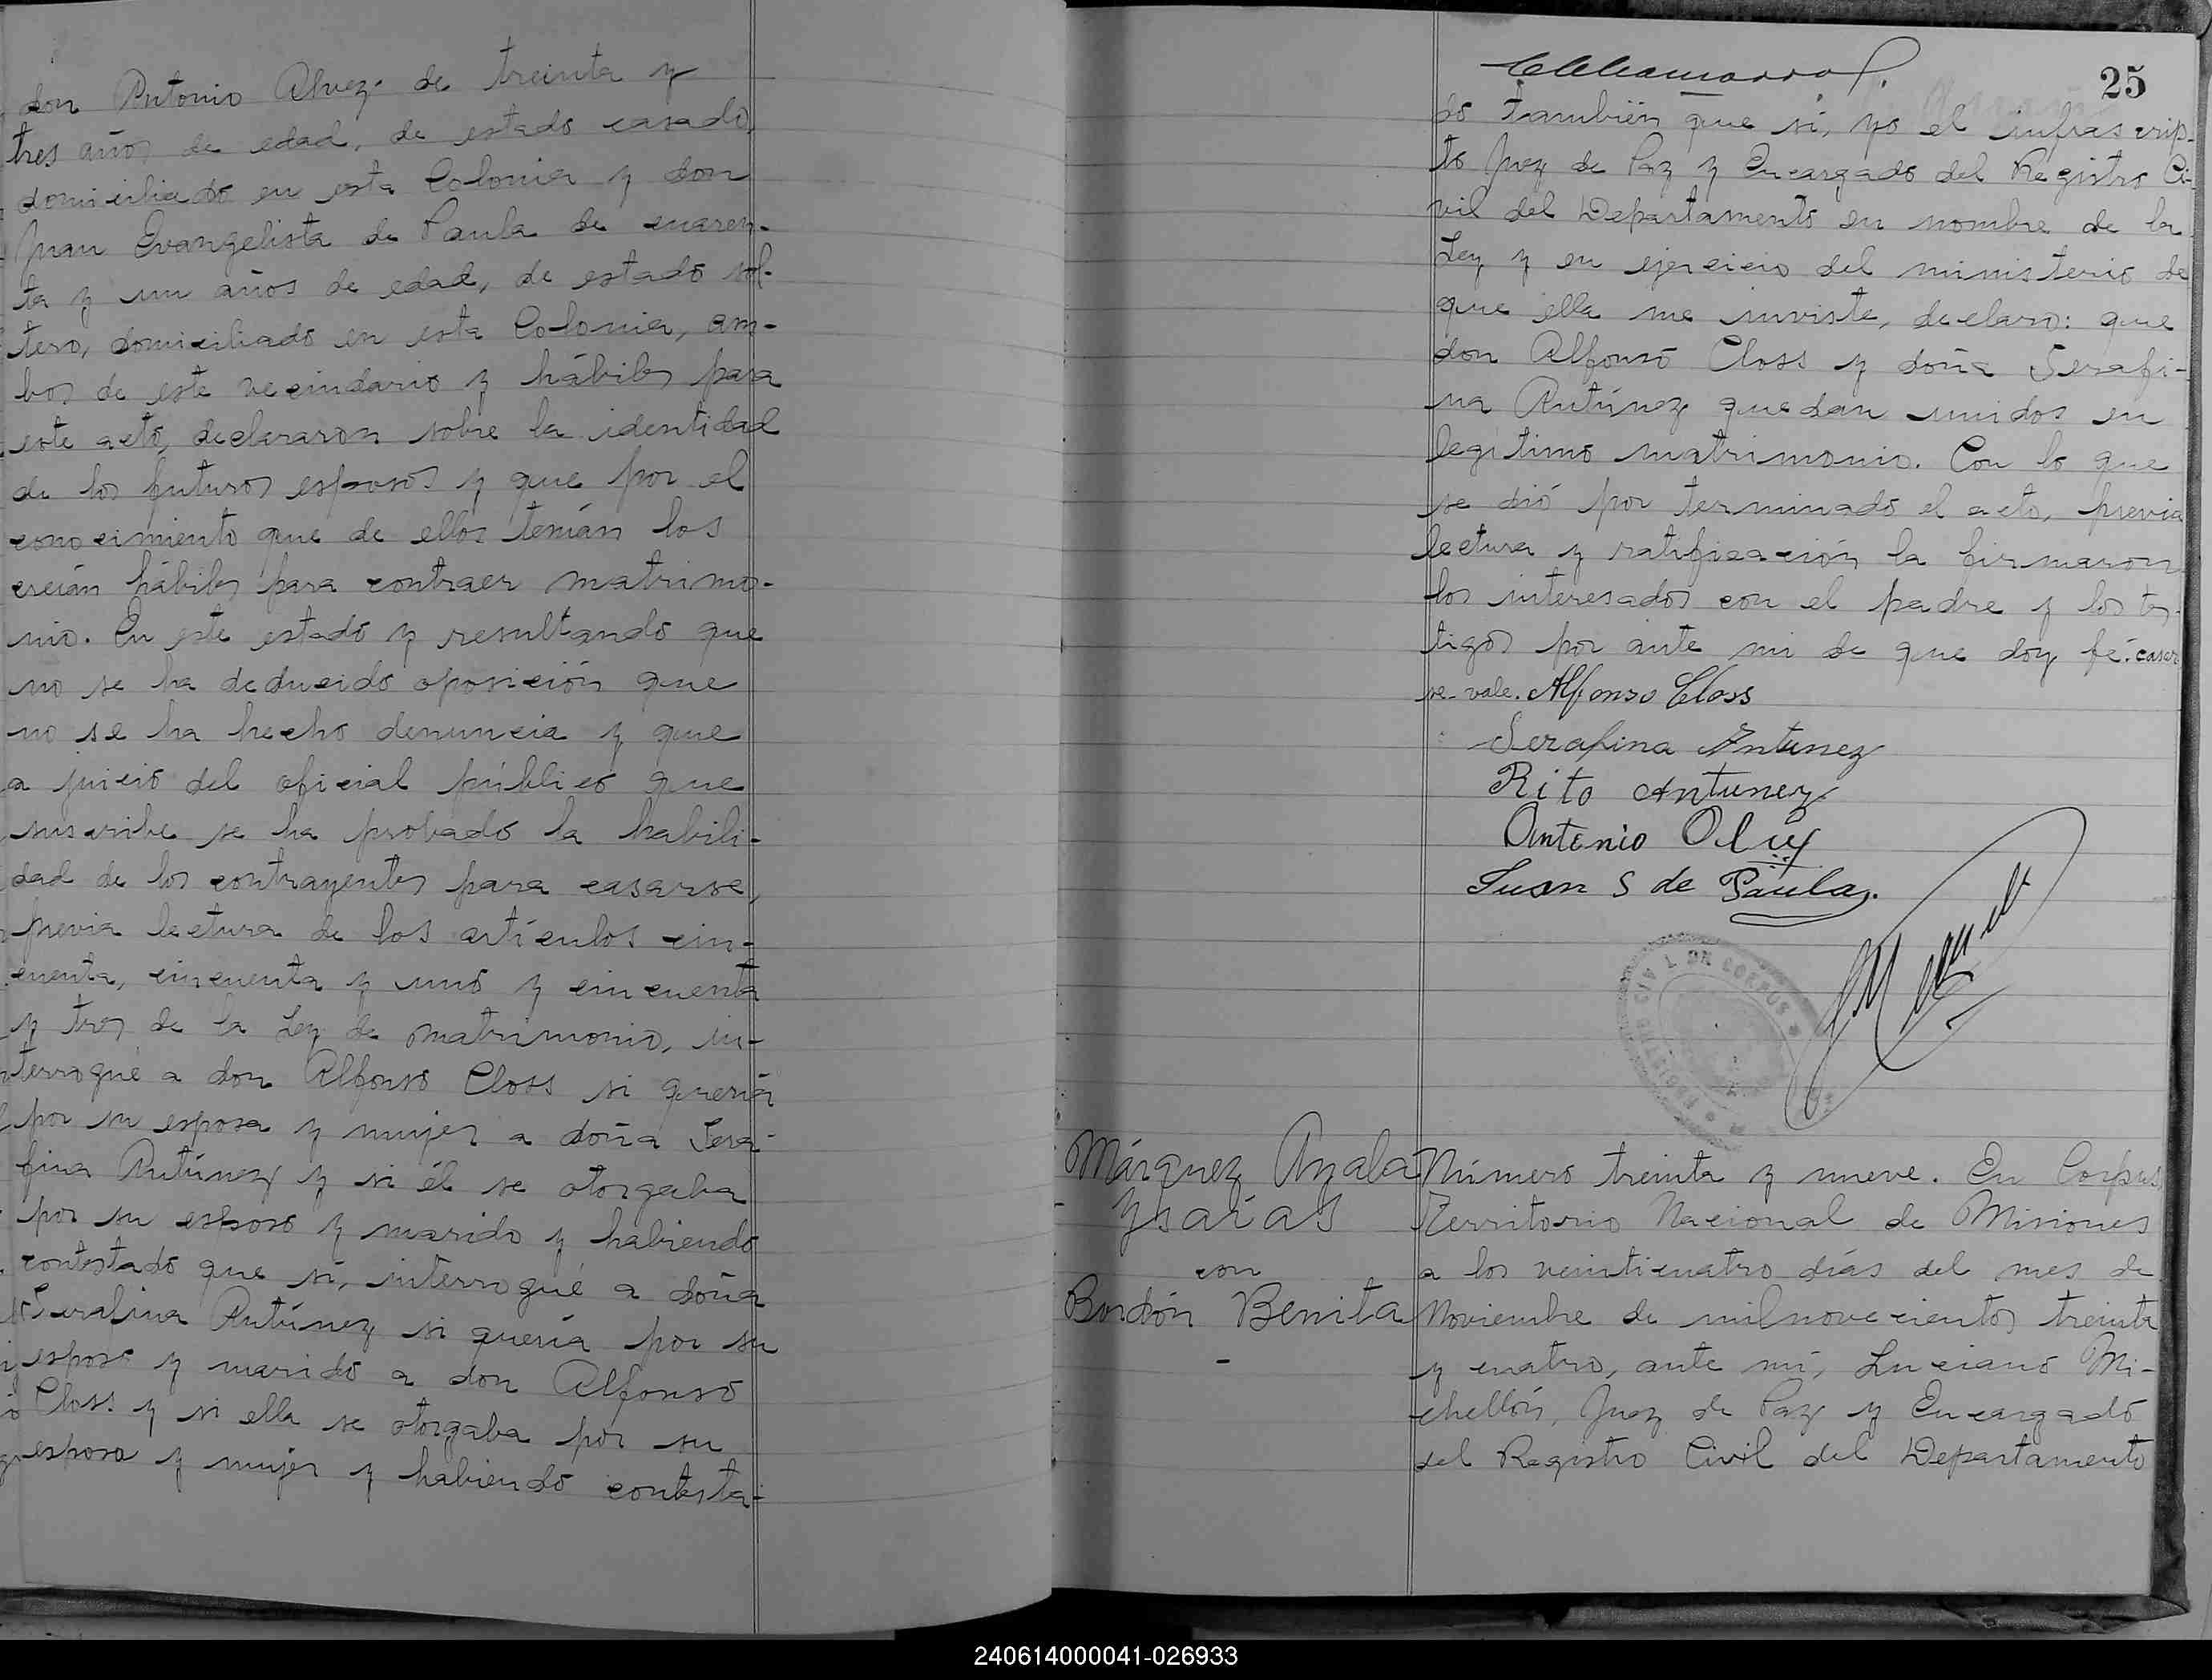 don Antonio Alvez de treinta y
tres años de edad, de estado casado,
domiciliado en esta Colonia y don
Juan Evangelista de Paula de cuaren-
ta y un años de edad, de estado sol-
tero, domiciliado en esta Colonia, am-
bos de este vecindario y hábiles para
este acto, declararon sobre la identidad
de los futuros esposos y que por el
conocimiento que de ellos tenían los
creían hábiles para contraer matrimo-
nio. En este estado y resultando que
no se ha deducido oposición que
no se ha hecho denuncia y que
a juicio del oficial público que
suscribe se ha probado la habili-
dad de los contrayentes para casarse,
previa lectura de los artículos cin-
cuenta, cincuenta y uno y cincuenta
y tres de la Ley de matrimonio, in-
terrogué a don Alfonso Closs si quería
por su esposa y mujer a doña Sera-
fina Antúnez y si él se otorgaba
por su esposo y marido y habiendo
contestado que sí, interrogué a doña
Serafina Antúnez si quería por su
esposo y marido a don Alfonso
Closs y si ella se otorgaba por su
esposa y mujer y habiendo contesta-
25
do también que sí, yo el infrascrip-
to Juez de Paz y Encargado del Registro Ci-
vil del Departamento en nombre de la
Ley y en ejercicio del ministerio de
que ella me inviste, declaro: que
don Alfonso Closs y doña Serafi-
na Antúnez quedan unidos en
legítimo matrimonio. Con lo que
se dió por terminado el acto, previa
lectura y ratificación la firmaron
los interesados con el padre y los tes-
tigos por ante mi de que doy fé. casar
se. vale. Alfonso Closs
Serafina Antunez
Rito Antunez
Antonio
Juan S de Paula.
REGISTRO CIVIL DE CORPUS
Márquez Ayala
Ysaías
con
Bordón Benita
-
Número treinta y nueve. En Corpus,
Territorio Nacional de Misiones
a los veinticuatro días del mes de
Noviembre de milnovecientos treinta
y cuatro, ante mí, Luciano Mi-
chellón, Juez de Paz y Encargado
del Registro Civil del Departamento
240614000041-026933